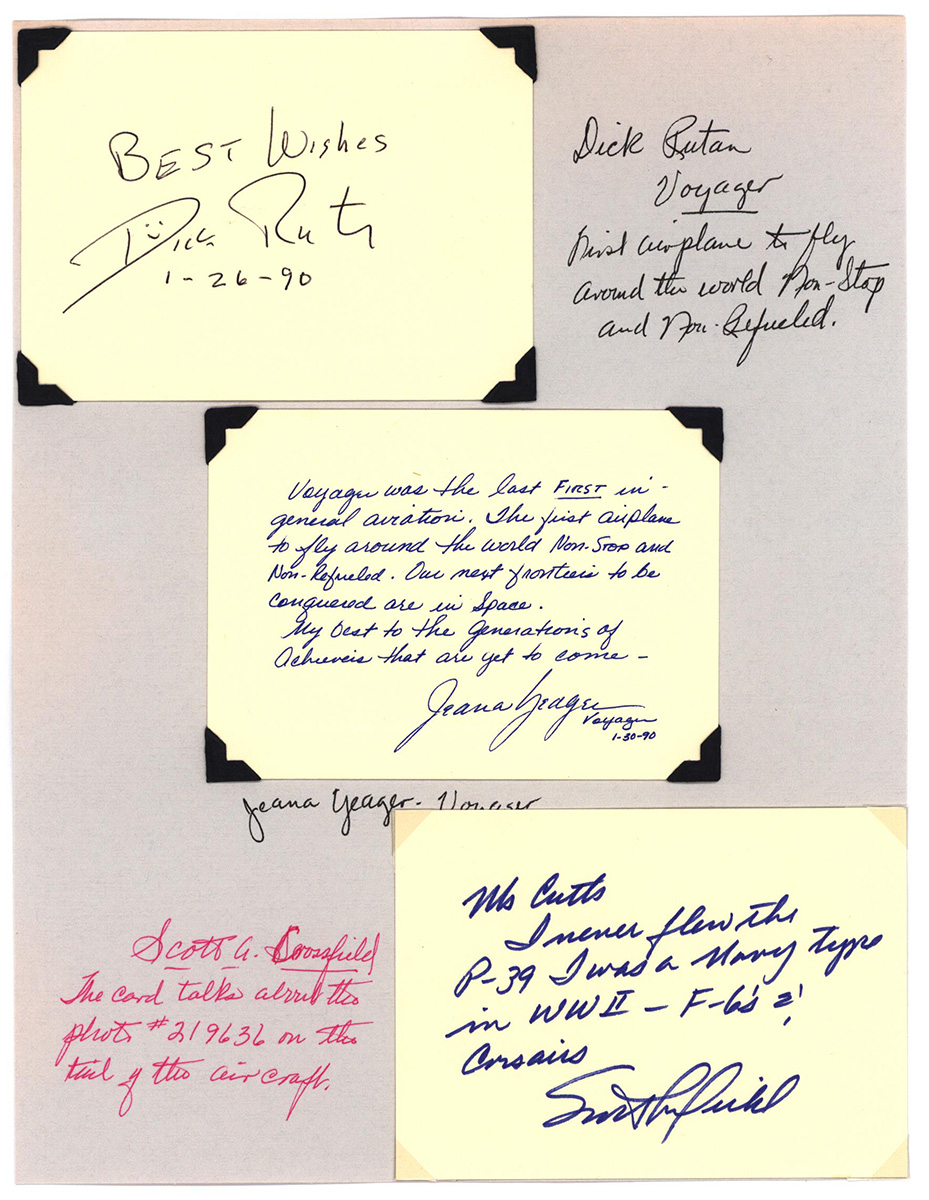 BEST Wishes
Dick Rutan
1-26-90
Dick Rutan
Voyager
First airplane to fly
around the world Non-Stop
and Non-Refueled.
Voyager was the last FIRST in -
general aviation. The first airplane
to fly around the world Non-Stop and
Non-Refueled. Our next frontiers to be
conquered are in Space.
My best to the Generations of
Achievers that are yet to come -
Jeana Yeager
Voyager
1-30-90
Jeana Yeager - Voyager
Scott A. Crossfield
The card talks about the
photo #219636 on the
tail of the aircraft.
Ms Cutts
I never flew the
P-39 I was a Navy type
in WWII - F-6's &
Corsairs
Scott Crossfield